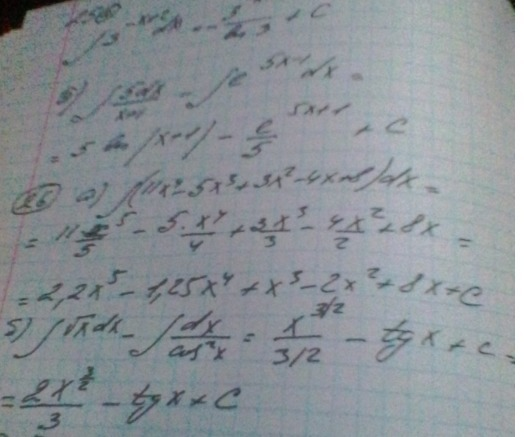 ∫3^(-x+2)dx = -3/ln 3 + C
б) ∫5dx/(x+1) - ∫e^(5x+1)dx =
= 5 ln|x+1| - e^(5x+1)/5 + C
а) ∫(11x⁴-5x³+3x²-4x+8)dx =
= 11x⁵/5 - 5·x⁴/4 + 3x³/3 - 4x²/2 + 8x =
= 2,2x⁵ - 1,25x⁴ + x³ - 2x² + 8x + C
б) ∫√x dx - ∫dx/cos²x = x^(3/2)/(3/2) - tg x + C =
= 2x^(3/2)/3 - tg x + C